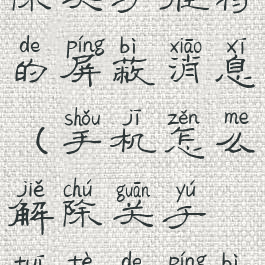 de píng bì xiāo xī
的屏蔽消息
shǒu jī zěn me
(手机怎么
jiě chú guān yú
解除关于
tuī tè de píng bì